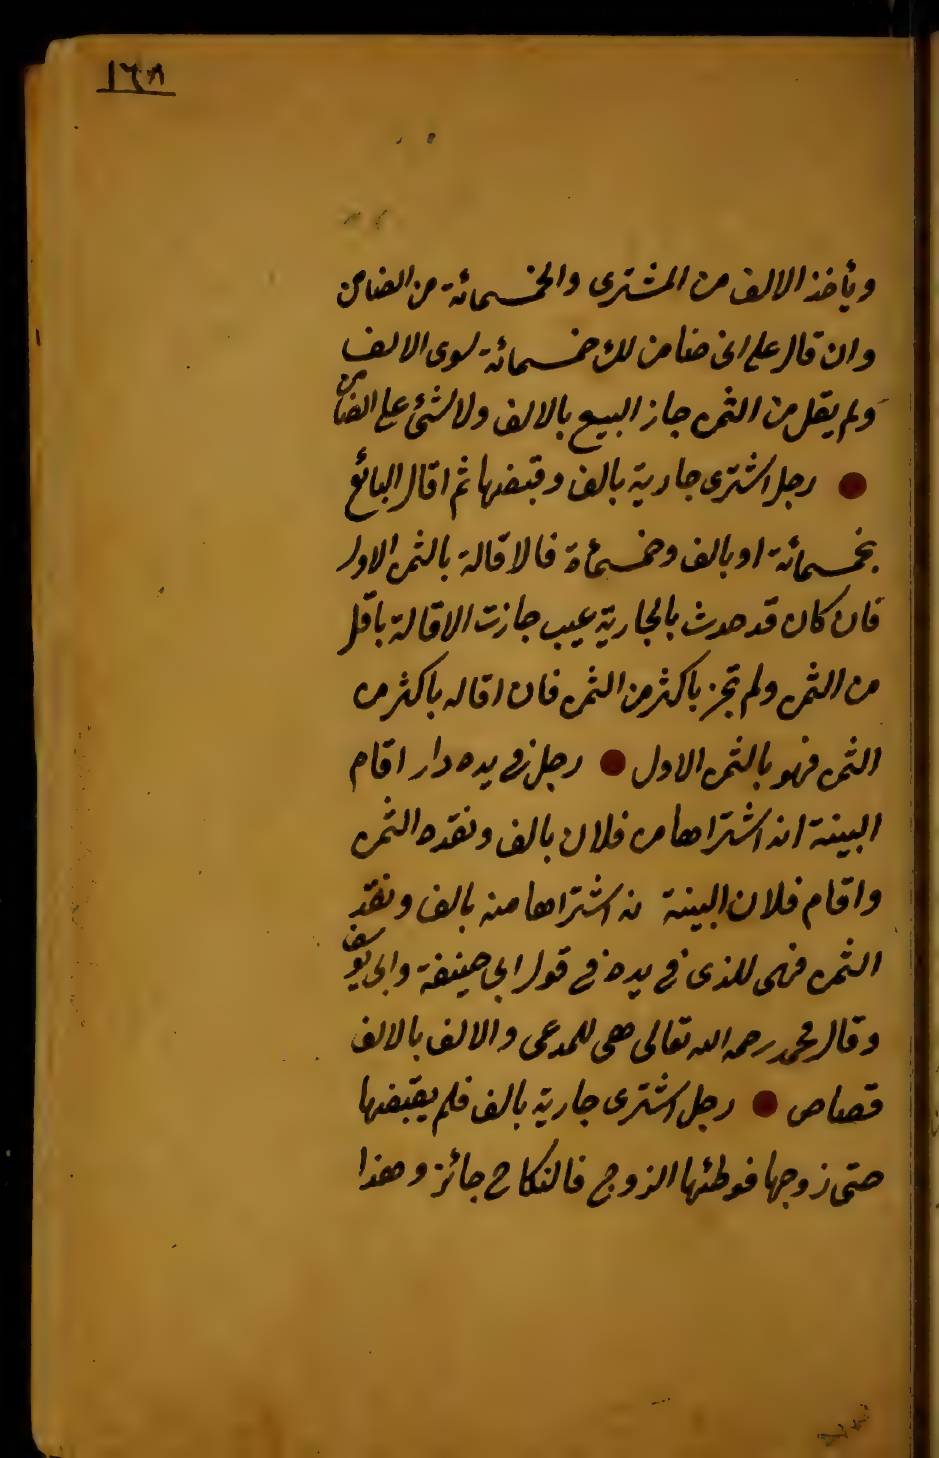 ١٦٨
ويأخذ الالف من المشترى والخمسمائة من الضامن
وان قال على انى ضامن لك خمسمائة سوى الالف
ولم يقل من الثمن جاز البيع بالالف ولا شئ على الضامن
رجل اشترى جارية بالف وقبضها ثم اقال البائع
بخمسمائة او بالف وخمسماة فالاقالة بالثمن الاول
فان كان قد حدث بالجارية عيب جازت الاقالة باقل
من الثمن ولم تجز باكثر من الثمن فان اقاله باكثر من
الثمن فهو بالثمن الاول رجل فى يده دار اقام
البينة انه اشتراها من فلان بالف ونقده الثمن
واقام فلان البينة نه اشتراها منه بالف ونقد
الثمن فهى للذى فى يده فى قول ابى حنيفة وابى يوسف
وقال محمد رحمه الله تعالى هى للمدعى والالف بالالف
قصاص رجل اشترى جارية بالف فلم يقبضها
حتى زوجها فوطئها الزوج فالنكاح جائز وهذا